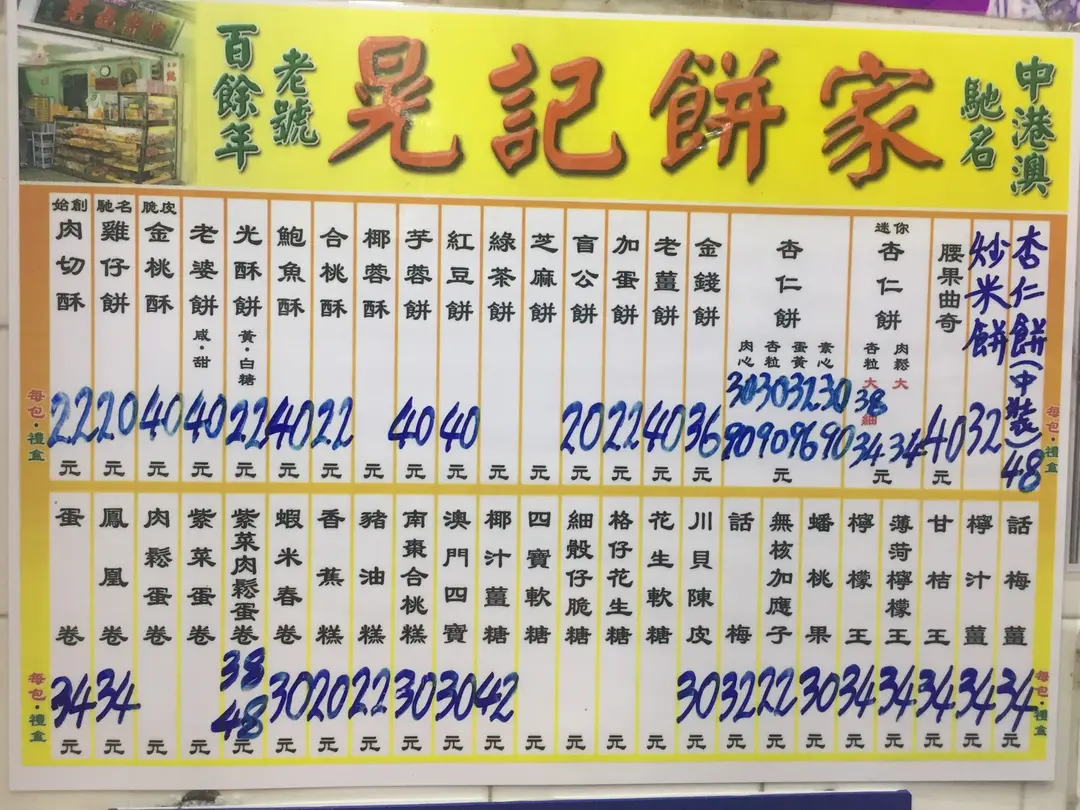 百餘年
老號
晃記餅家
馳名
中港澳
每包·禮盒
始創 肉切酥 22元
馳名 雞仔餅 20元
脆皮 金桃酥 40元
老婆餅 咸·甜 40元
光酥餅 黃·白糖 22元
鮑魚酥 40元
合桃酥 22元
椰蓉酥 元
芋蓉餅 40元
紅豆餅 40元
綠茶餅 元
芝麻餅 元
盲公餅 20元
加蛋餅 22元
老薑餅 40元
金錢餅 36元
杏仁餅
肉心 杏粒 蛋黃 素心
30 30 32 30
90 90 96 90
元
迷你 杏仁餅
杏粒 肉鬆
大 大
38
細
34 34
元
腰果曲奇 40元
炒米餅 32
杏仁餅(中裝) 48
每包·禮盒
每包·禮盒
蛋卷 34元
鳳凰卷 34元
肉鬆蛋卷 元
紫菜蛋卷 元
紫菜肉鬆蛋卷 38 48元
蝦米春卷 30元
香蕉糕 20元
豬油糕 22元
南棗合桃糕 30元
澳門四寶 30元
椰汁薑糖 42元
四寶軟糖 元
細骰仔脆糖 元
格仔花生糖 元
花生軟糖 元
川貝陳皮 30元
話梅 32元
無核加應子 22元
蟠桃果 30元
檸檬王 34元
薄荷檸檬王 34元
甘桔王 34元
檸汁薑 34元
話梅薑 34元
每包·禮盒